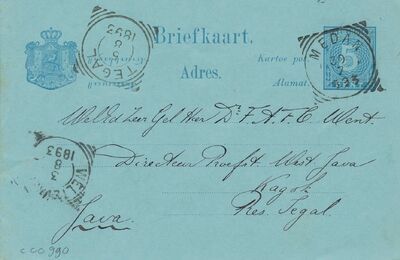 Briefkaart.
Kartoe pos
Adres.
Alamat.
5
MEDAN
TEGAL
3
8
1893
WelEd Zeer Gel Heer Dr F. A. F. C. Went.
Directeur Proefst. West Java
Kagok
Res. Tegal.
Java.
3
8
1893
C 00 990